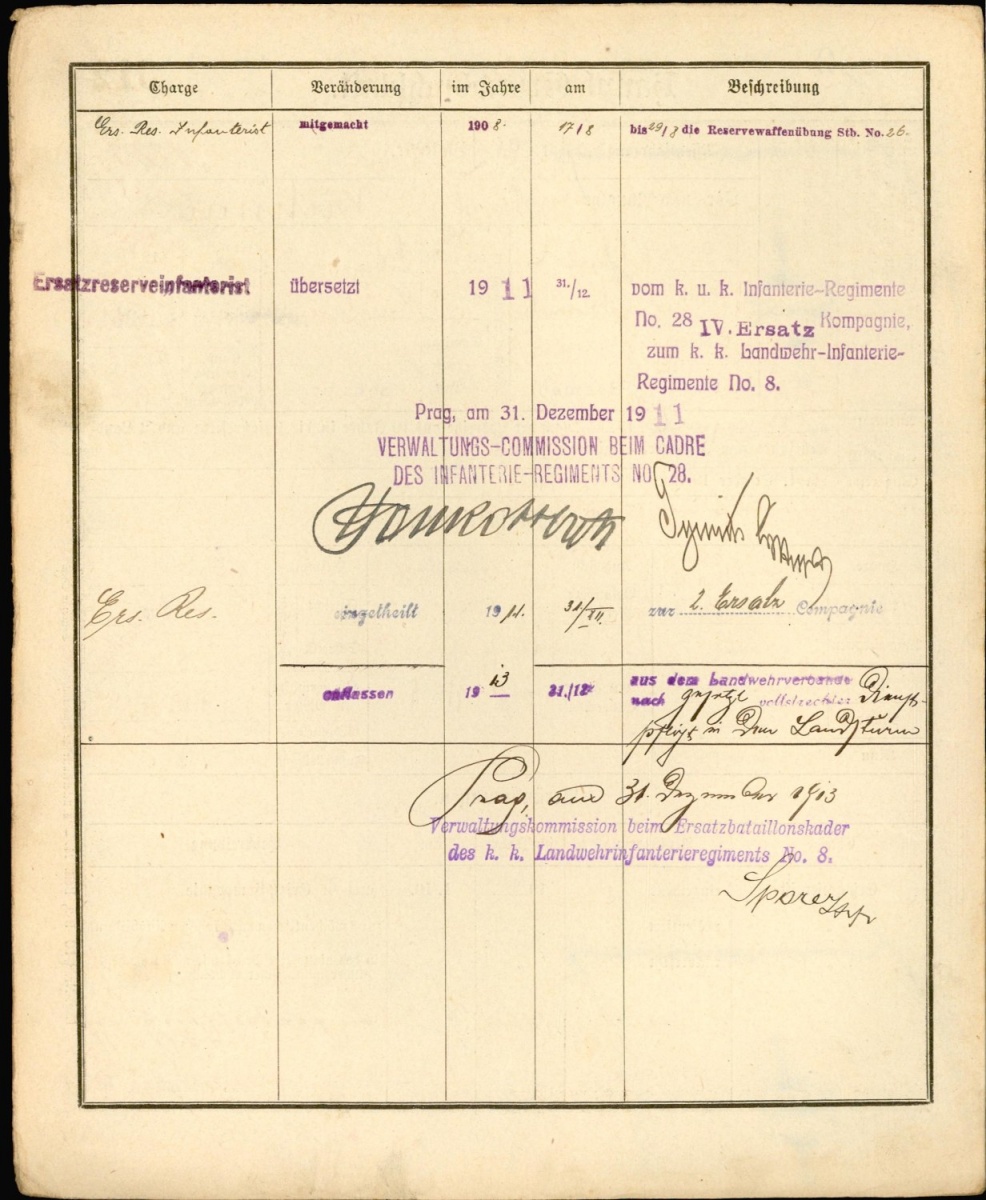 Charge Veränderung im Jahre am Beschreibung
Ers. Res. Infanterist mitgemacht 1908. 17/8 bis 29/8 die Reservewaffenübung Stb. No. 26.
Ersatzreserveinfanterist übersetzt 1911 31./12. vom k. u. k. Infanterie-Regimente
No. 28 IV. Ersatz Kompagnie,
zum k. k. Landwehr-Infanterie-
Regimente No. 8.
Prag, am 31. Dezember 1911
VERWALTUNGS-COMMISSION BEIM CADRE
DES INFANTERIE-REGIMENTS NO 28.
Ers. Res. eingetheilt 1911. 31/XII. zur 2. Ersatz Compagnie
entlassen 1913 31./12. aus dem Landwehrverbande
nach gesetzl vollstreckter Dienst-
pflicht in den Landsturm
Prag, am 31. Dezember 1913
Verwaltungskommission beim Ersatzbataillonskader
des k. k. Landwehrinfanterieregiments No. 8.